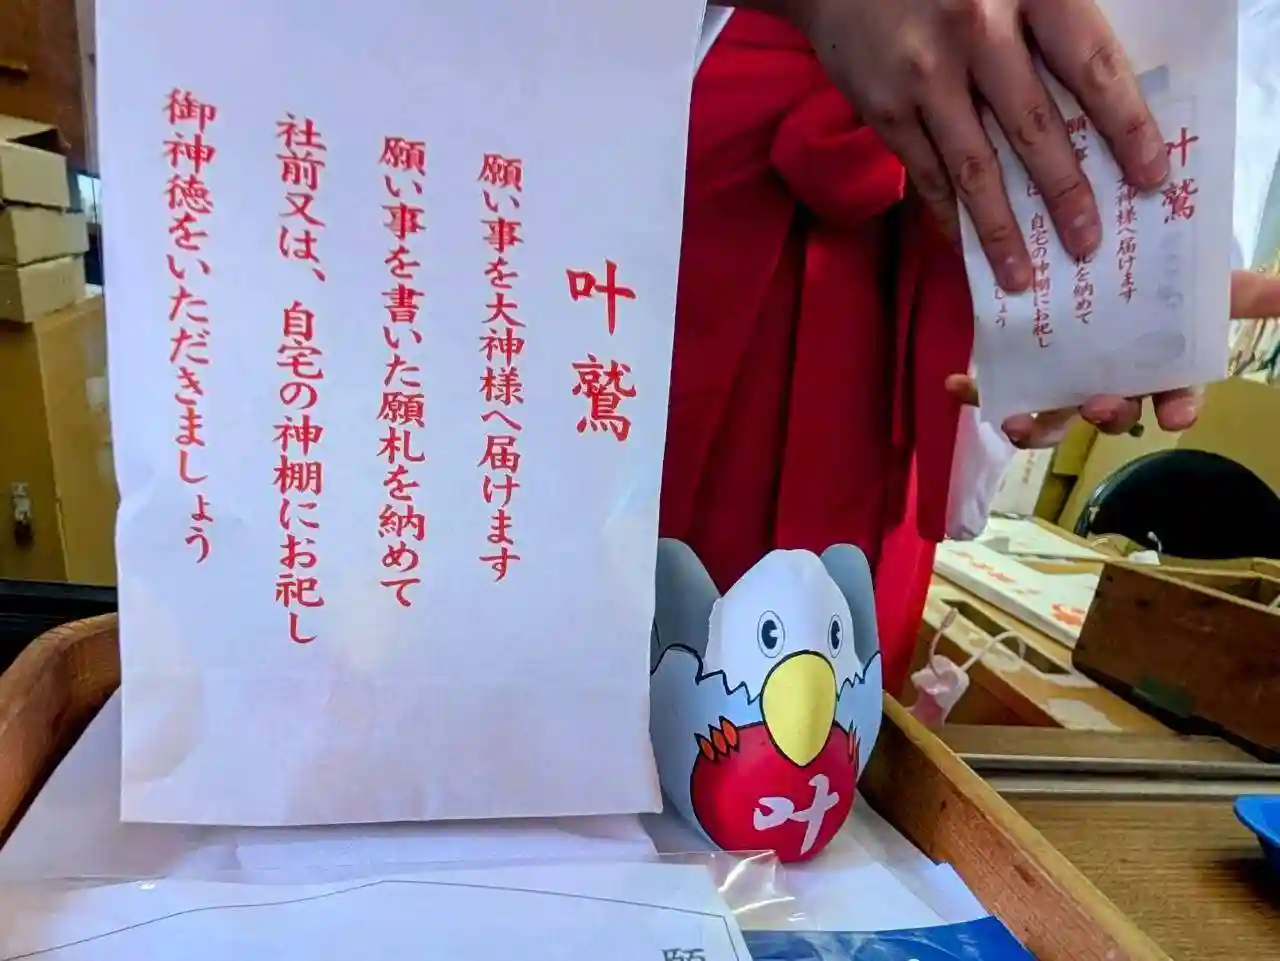 叶鷲
願い事を大神様へ届けます
願い事を書いた願札を納めて
社前又は、自宅の神棚にお祀し
御神徳をいただきましょう
叶鷲
大神様へ届けます
札を納めて
自宅の神棚にお祀し
しょう
叶
願